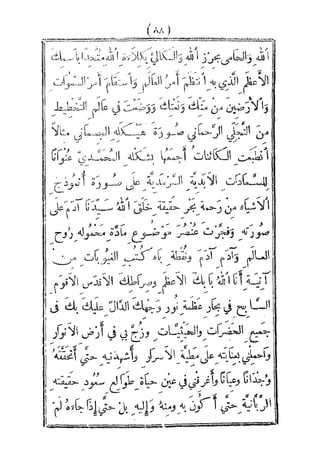 (٨٨)
الله والحامى بحرز الله والكالئ بكلاءة الله متحدا باسمك
الاعظم الذي به انتظم أمر العالم واستقام أمر السموات
والارضين من منك وتمنك ووضعت في عالم التخطيط
من التجلي الرحماني صورة هيكله الجسماني مثالا
انطبعت الكائنات أجمعها بشكله المحمدي عنوانا
للسعادات الابدية السرمدية على صورة أنموذج
الاشياء من رحمة بحر حقيقة خلق الله سيدنا آدم على
صورته وفجرت عنصر موضوع مادة محموله روح
العالم وآدم آدم ونقطة باء كتب الغيوبات من
آنية أنا الله بابك الاعظم وصراطك الاقدس الاقوم
السابح في بحار عظمة نور وجهك الدال عليك بك فى
جميع الحضرات والحيثيات وزج بي في أرض الانوار
واحملني بعنايته على مطية الاسرار وأشهدنيه حتى أتحققه
وجدانا وعيانا وأغرقني في عين حياة طوالع سعود حقيقته
الربانية حتى أكون به ومنه وإليه بل حتى إذا جاءه لم